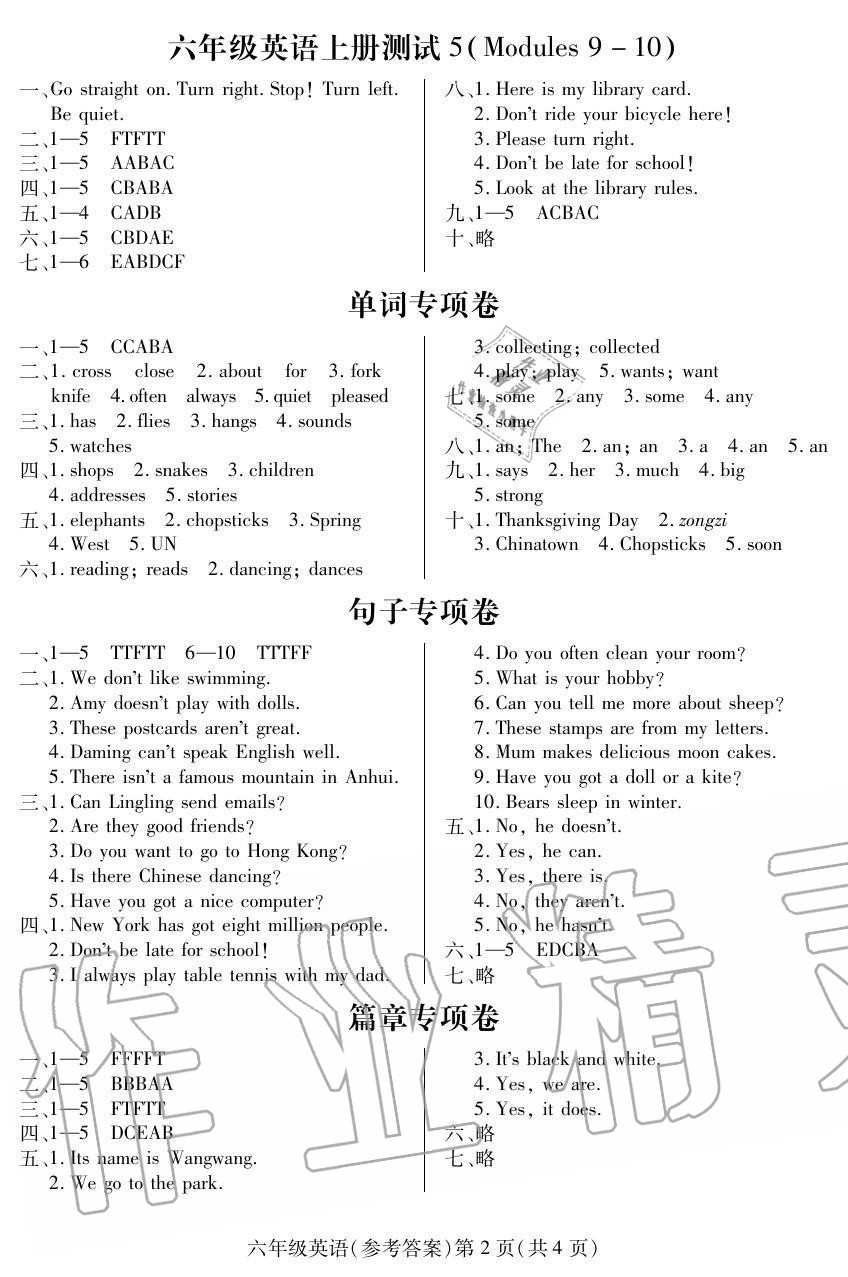 六年级英语上册测试 5(Modules 9－10)
一、Go straight on. Turn right. Stop! Turn left.
Be quiet.
二、1—5 FTFTT
三、1—5 AABAC
四、1—5 CBABA
五、1—4 CADB
六、1—5 CBDAE
七、1—6 EABDCF
八、1. Here is my library card.
2. Don't ride your bicycle here!
3. Please turn right.
4. Don't be late for school!
5. Look at the library rules.
九、1—5 ACBAC
十、略
单词专项卷
一、1—5 CCABA
二、1. cross close 2. about for 3. fork
knife 4. often always 5. quiet pleased
三、1. has 2. flies 3. hangs 4. sounds
5. watches
四、1. shops 2. snakes 3. children
4. addresses 5. stories
五、1. elephants 2. chopsticks 3. Spring
4. West 5. UN
六、1. reading; reads 2. dancing; dances
3. collecting; collected
4. play; play 5. wants; want
七、1. some 2. any 3. some 4. any
5. some
八、1. an; The 2. an; an 3. a 4. an 5. an
九、1. says 2. her 3. much 4. big
5. strong
十、1. Thanksgiving Day 2. zongzi
3. Chinatown 4. Chopsticks 5. soon
句子专项卷
一、1—5 TTFTT 6—10 TTTFF
二、1. We don't like swimming.
2. Amy doesn't play with dolls.
3. These postcards aren't great.
4. Daming can't speak English well.
5. There isn't a famous mountain in Anhui.
三、1. Can Lingling send emails?
2. Are they good friends?
3. Do you want to go to Hong Kong?
4. Is there Chinese dancing?
5. Have you got a nice computer?
四、1. New York has got eight million people.
2. Don't be late for school!
3. I always play table tennis with my dad.
4. Do you often clean your room?
5. What is your hobby?
6. Can you tell me more about sheep?
7. These stamps are from my letters.
8. Mum makes delicious moon cakes.
9. Have you got a doll or a kite?
10. Bears sleep in winter.
五、1. No, he doesn't.
2. Yes, he can.
3. Yes, there is.
4. No, they aren't.
5. No, he hasn't.
六、1—5 EDCBA
七、略
篇章专项卷
一、1—5 FFFFT
二、1—5 BBBAA
三、1—5 FTFTT
四、1—5 DCEAB
五、1. Its name is Wangwang.
2. We go to the park.
3. It's black and white.
4. Yes, we are.
5. Yes, it does.
六、略
七、略
六年级英语(参考答案)第 2 页(共 4 页)
作业精灵